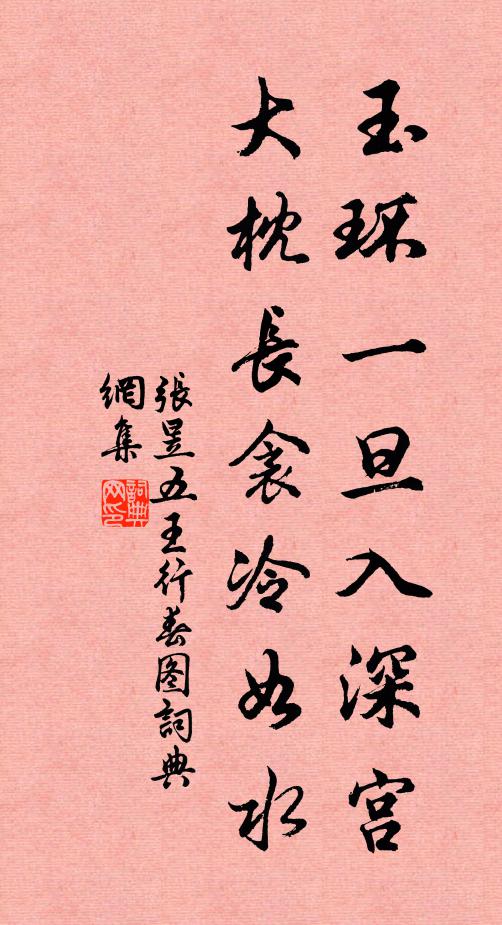 玉环一旦入深宫
大枕長衾冷如水
張昱五王行春图詞典
網集
詞典网印